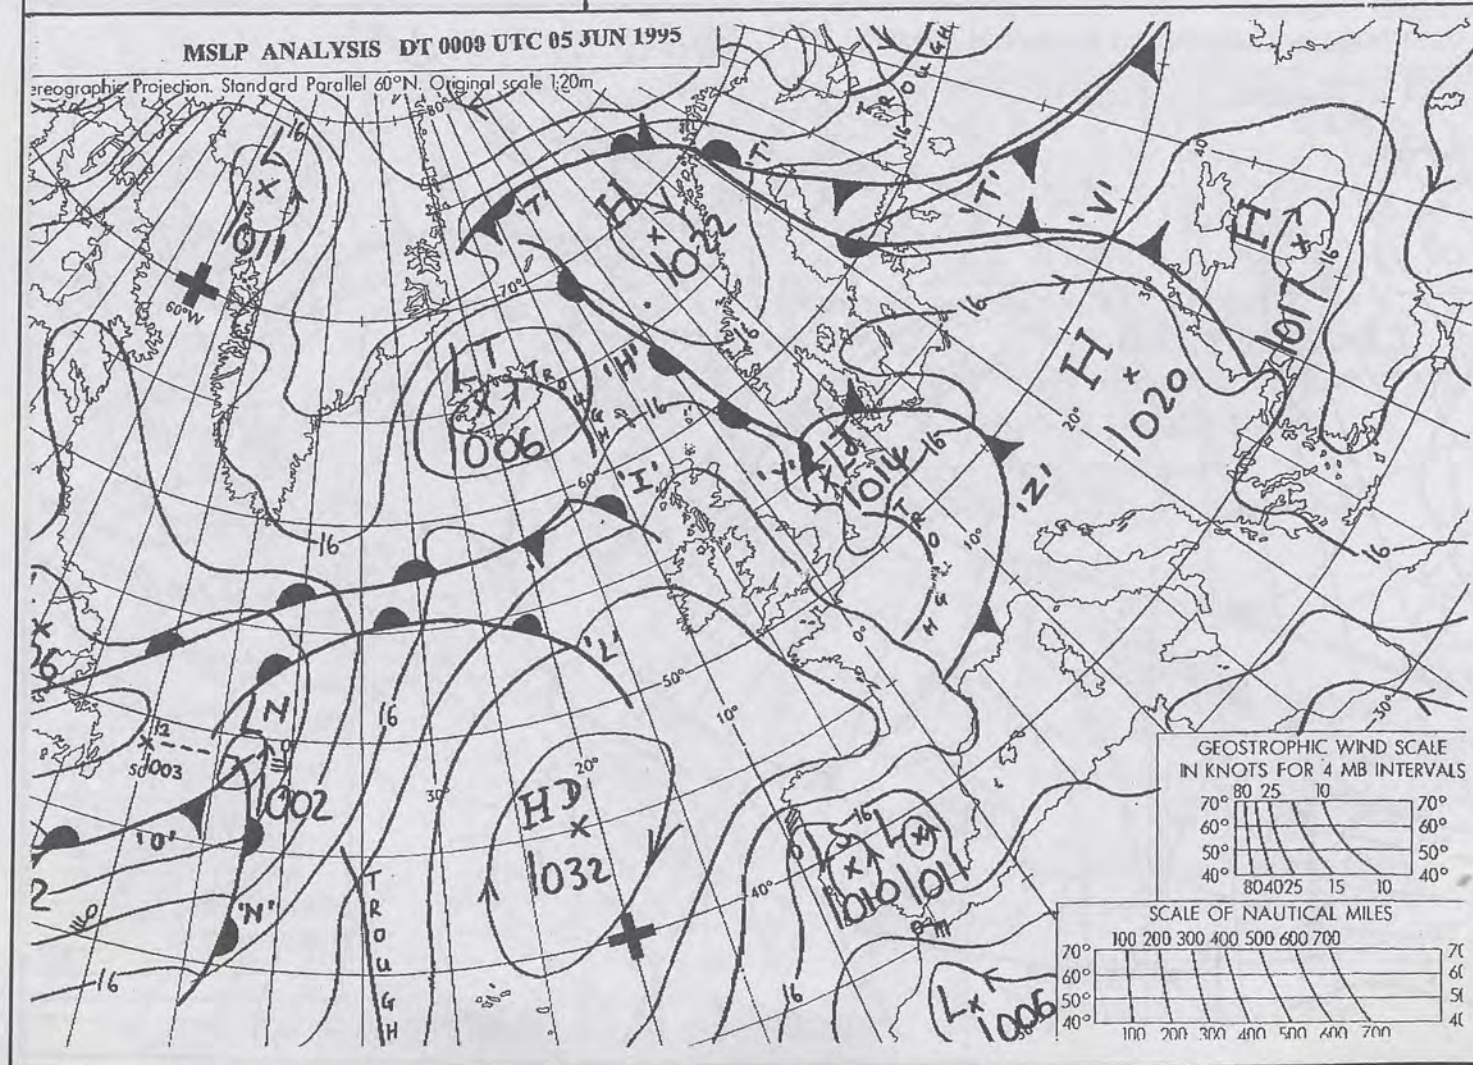 MSLP ANALYSIS DT 0000 UTC 05 JUN 1995
ereographic Projection. Standard Parallel 60°N. Original scale 1:20m
80°
16
TROUGH
16
'T'
'T'
'V'
40
H
1022
'T'
H
1017
16
1011
60°W
70°
16
30°
16
H
1020
LT
1006
TROUGH
'H'
16
16
20°
'Y'
1014
16
TROUGH
'Z'
10°
60°
'I'
16
16
0°
'L'
50°
10°
LN
16
12
1003
1002
30°
20°
HD
1032
'O'
TROUGH
'N'
16
40°
16
16
L
1010
L
1011
L
1006
30°
GEOSTROPHIC WIND SCALE
IN KNOTS FOR 4 MB INTERVALS
80 25 10
70° 70°
60° 60°
50° 50°
40° 40°
80 40 25 15 10
SCALE OF NAUTICAL MILES
100 200 300 400 500 600 700
70°
60°
50°
40°
100 200 300 400 500 600 700